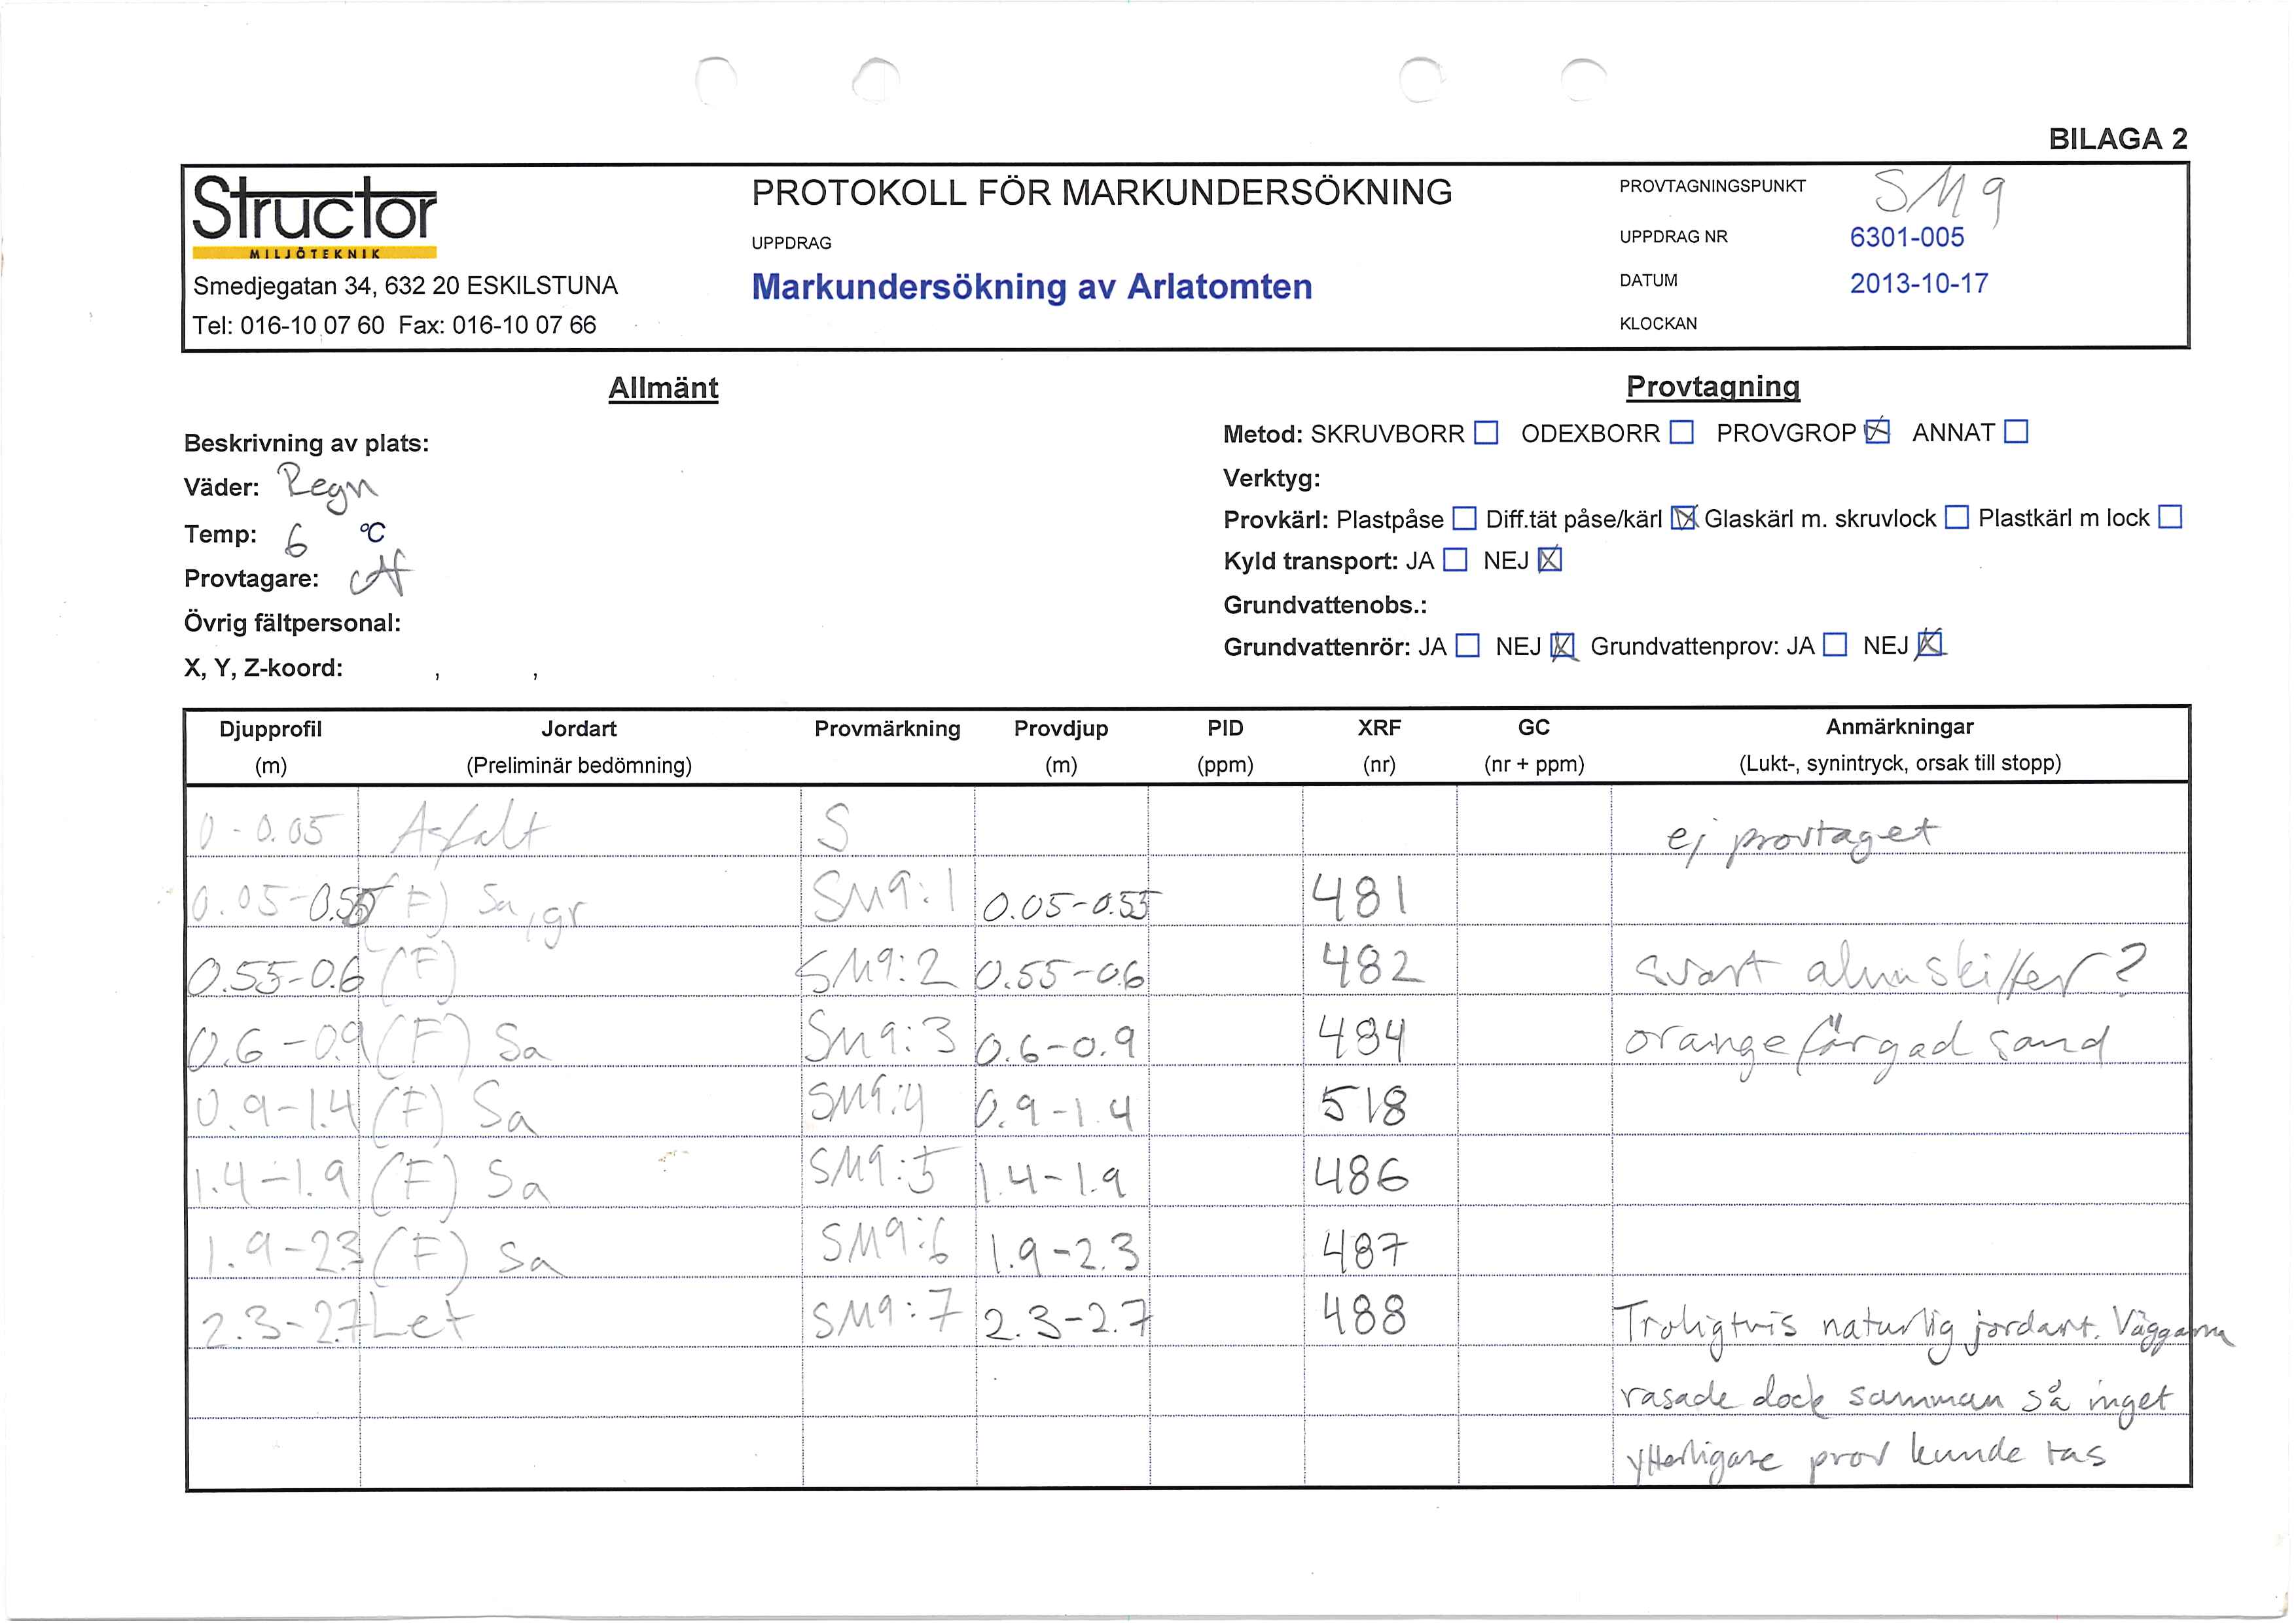 BILAGA 2
Structor
MILJÖTEKNIK
Smedjegatan 34, 632 20 ESKILSTUNA
Tel: 016-10 07 60 Fax: 016-10 07 66
PROTOKOLL FÖR MARKUNDERSÖKNING
UPPDRAG
Markundersökning av Arlatomten
PROVTAGNINGSPUNKT SM9
UPPDRAG NR 6301-005
DATUM 2013-10-17
KLOCKAN
Allmänt
Beskrivning av plats:
Väder: Regn
Temp: 6 °C
Provtagare:
Övrig fältpersonal:
X, Y, Z-koord: , ,
Provtagning
Metod: SKRUVBORR ☐ ODEXBORR ☐ PROVGROP ☒ ANNAT ☐
Verktyg:
Provkärl: Plastpåse ☐ Diff.tät påse/kärl ☒ Glaskärl m. skruvlock ☐ Plastkärl m lock ☐
Kyld transport: JA ☐ NEJ ☒
Grundvattenobs.:
Grundvattenrör: JA ☐ NEJ ☒ Grundvattenprov: JA ☐ NEJ ☒
Djupprofil Jordart Provmärkning Provdjup PID XRF GC Anmärkningar
(m) (Preliminär bedömning) (m) (ppm) (nr) (nr + ppm) (Lukt-, synintryck, orsak till stopp)
0-0.05 Asfalt S ej provtaget
0.05-0.55 (F) Sa, gr SM9:1 0.05-0.55 481
0.55-0.6 (F) SM9:2 0.55-0.6 482 svart alunskiffer?
0.6-0.9 (F) Sa SM9:3 0.6-0.9 484 orangefärgad sand
0.9-1.4 (F) Sa SM9:4 0.9-1.4 518
1.4-1.9 (F) Sa SM9:5 1.4-1.9 486
1.9-2.3 (F) Sa SM9:6 1.9-2.3 487
2.3-2.7 Let SM9:7 2.3-2.7 488 Troligtvis naturlig jordart. Väggarna
rasade dock samman så inget
ytterligare prov kunde tas